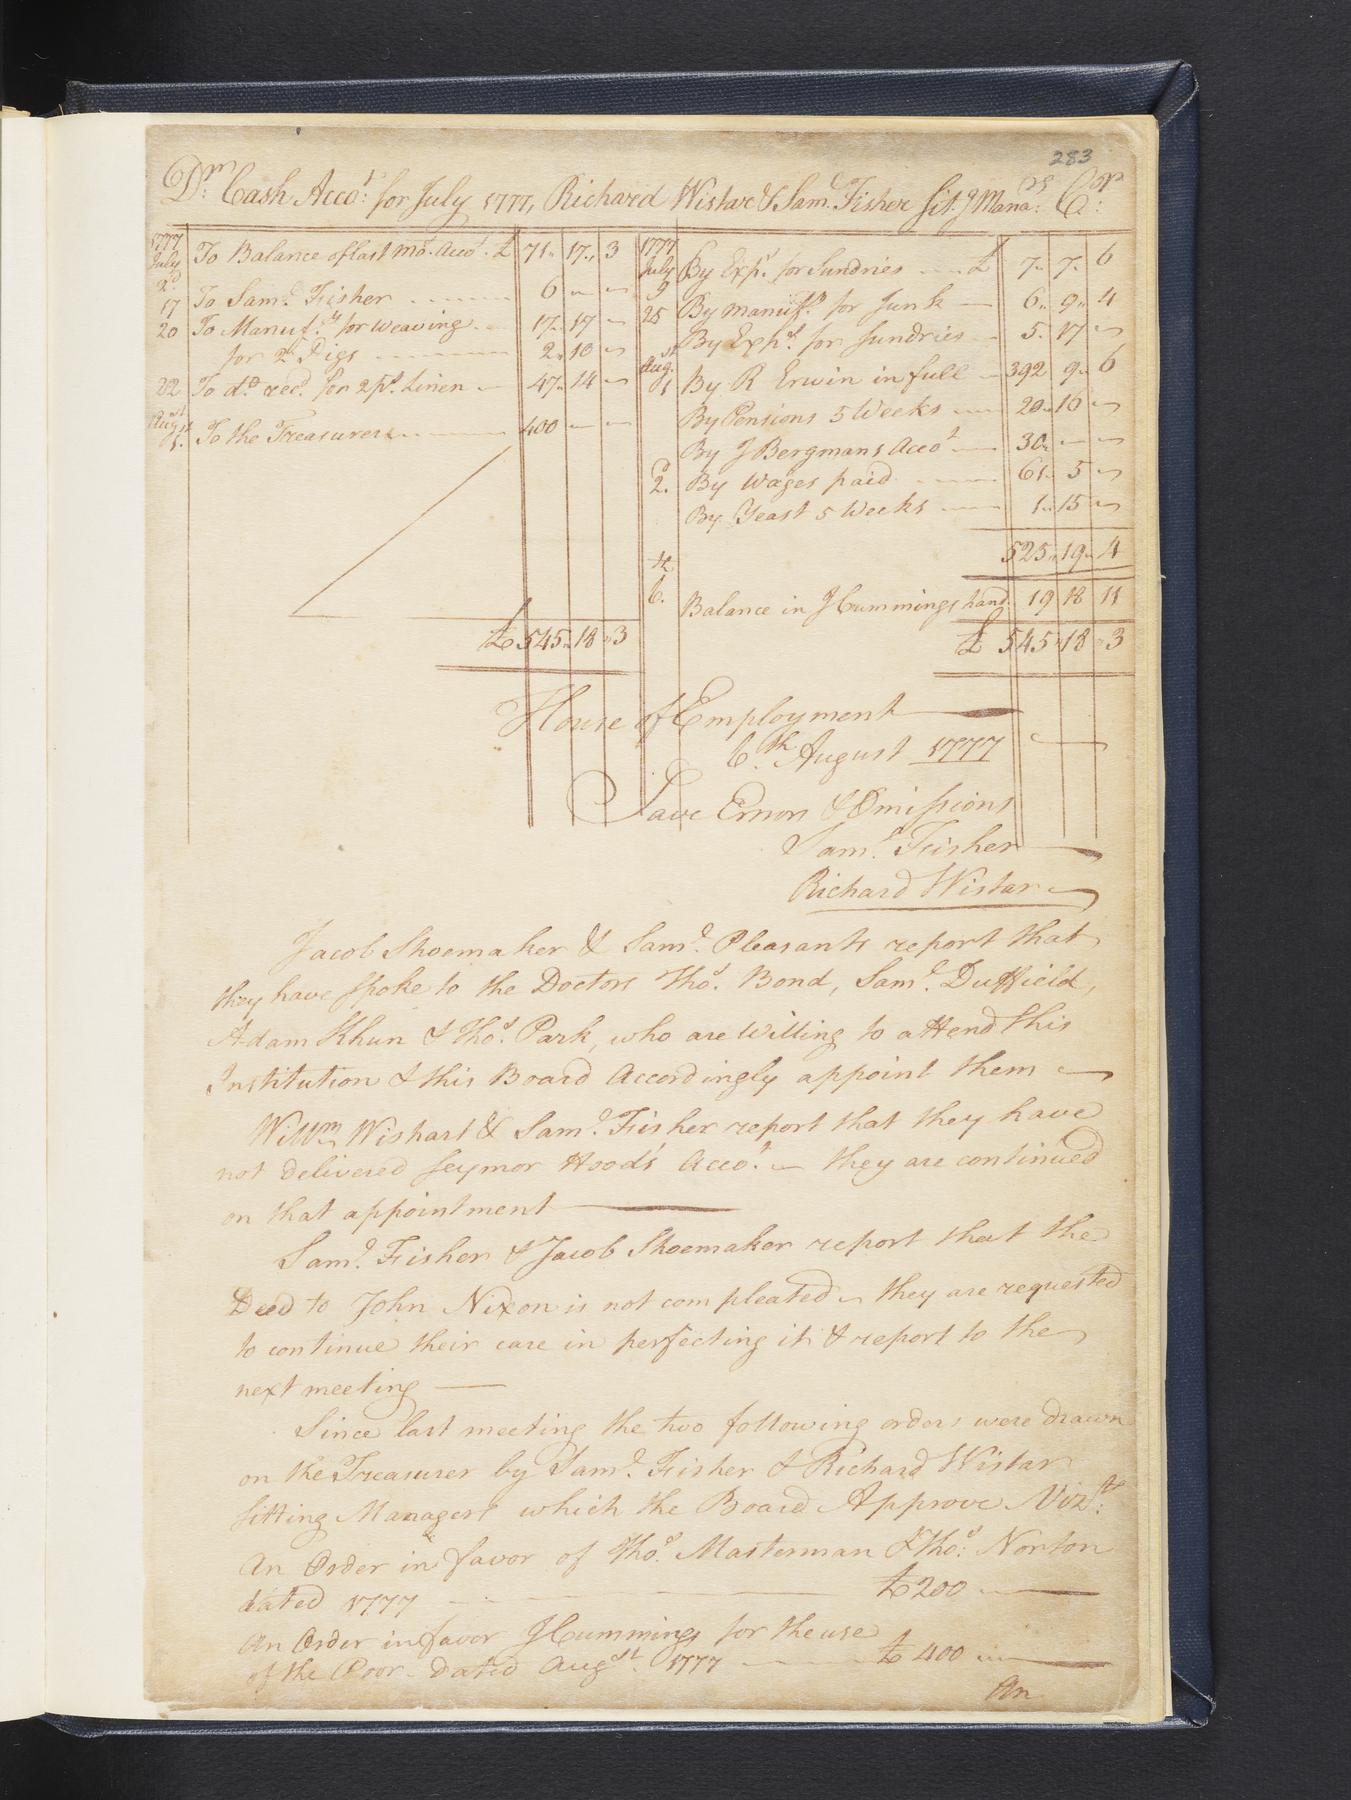 283
Dr. Cash Accot. for July 1777, Richard Wistar & Saml. Fisher Sit.g Manars. Cr.
1777 July 2d To Balance of last mo. Accot. £ 71 17 3
17 To Saml. Fisher 6 — —
20 To Manufy. for weaving 17 17 —
for 2 Pigs 2 10 —
22 To do. recd. for 2 ps. Linen 47 14 —
Augst. 1st. To the Treasurer 400 — —
£ 545 18 3
1777 July 9 By Exps. for Sundries £ 7 7 6
25 By manufy. for Junk 6 9 4
By Exps. for sundries 5 17 —
Aug.st 1 By R Erwin in full 392 9 6
By Pensions 5 Weeks 20 16 —
By J Bergmans Accot 30 — —
2d. By Wages paid 61 5 —
By Yeast 5 Weeks 1 15 —
525 19 4
6. Balance in J Cummings hand 19 18 11
£ 545 18 3
House of Employment
6th. August 1777
Save Errors & Omissions
Saml. Fisher
Richard Wistar
Jacob Shoemaker & Saml. Pleasants report that
they have spoke to the Doctors Thos. Bond, Saml. Duffield,
Adam Khun & Thos. Park, who are Willing to attend this
Institution & this Board Accordingly appoint them
Willm. Wishart & Saml. Fisher report that they have
not delivered Seymor Hood's Accot. — they are continued
on that appointment
Saml. Fisher & Jacob Shoemaker report that the
Deed to John Nixon is not compleated — they are requested
to continue their care in perfecting it & report to the
next meeting —
Since last meeting the two following orders were drawn
on the Treasurer by Saml. Fisher & Richard Wistar
sitting Managers which the Board Approve Vizt:
An Order in favor of Thos. Masterman & Thos. Norton
dated 1777 £ 200
An Order in favor J Cummings for the use
of the Poor - Dated Augst. 1777 £ 400
An